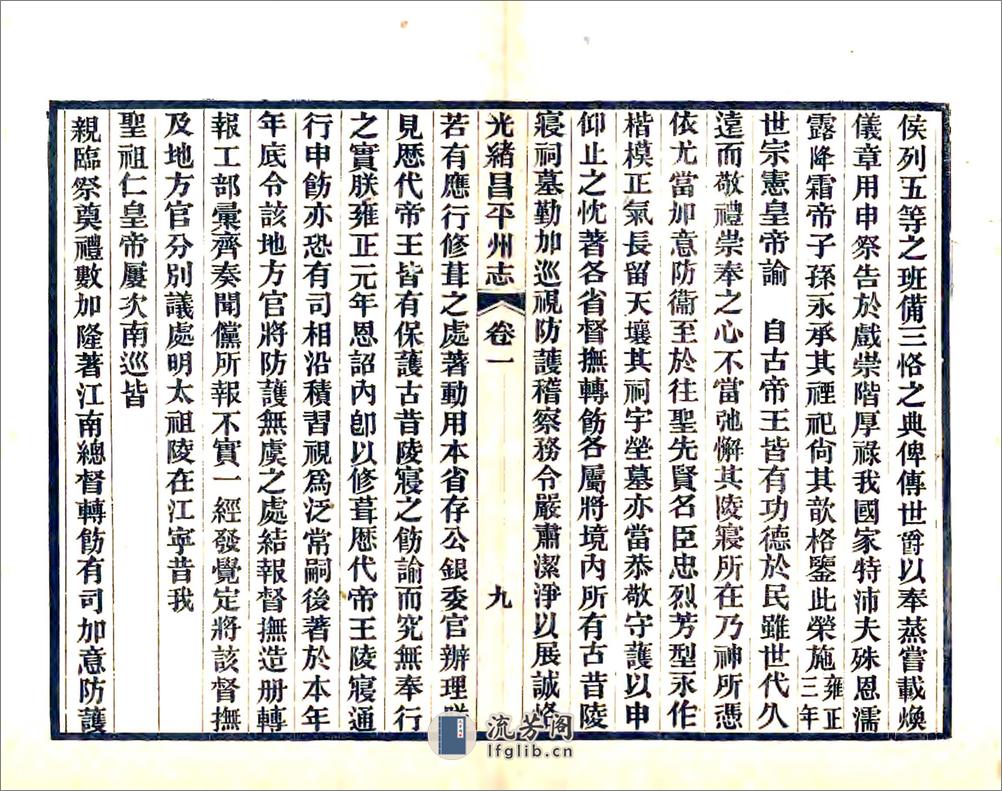 侯列五等之班備三恪之典俾傳世爵以奉蒸嘗載煥
儀章用申祭告於戲崇階厚祿我國家特沛夫殊恩濡
露降霜帝子孫永承其禋祀尙其歆格鑒此榮施雍正三年
世宗憲皇帝諭 自古帝王皆有功德於民雖世代久
遠而敬禮崇奉之心不當弛懈其陵寢所在乃神所憑
依尤當加意防衞至於往聖先賢名臣忠烈芳型永作
楷模正氣長留天壤其祠宇塋墓亦當恭敬守護以申
仰止之忱著各省督撫轉飭各屬將境內所有古昔陵
寢祠墓勤加巡視防護稽察務令嚴肅潔淨以展誠恪
光緒昌平州志 卷一 九
若有應行修葺之處著動用本省存公銀委官辦理
見歷代帝王皆有保護古昔陵寢之飭諭而究無奉行
之實朕雍正元年恩詔內卽以修葺歷代帝王陵寢通
行申飭亦恐有司相沿積習視爲泛常嗣後著於本年
年底令該地方官將防護無虞之處結報督撫造册轉
報工部彙齊奏聞儻所報不實一經發覺定將該督撫
及地方官分別議處明太祖陵在江寧昔我
聖祖仁皇帝屢次南巡皆
親臨祭奠禮數加隆著江南總督轉飭有司加意防護
流芳閣
lfglib.cn